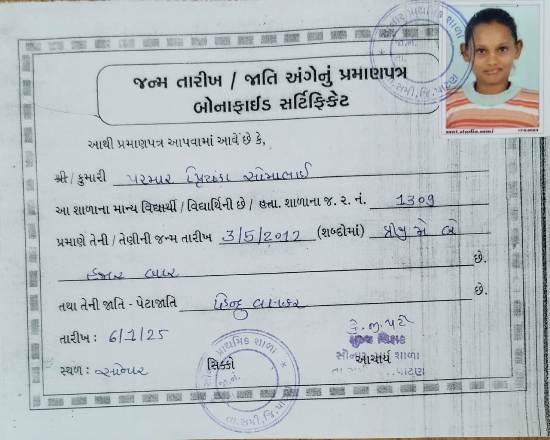 જન્મ તારીખ / જાતિ અંગેનું પ્રમાણપત્ર
બોનાફાઈડ સર્ટિફિકેટ
આથી પ્રમાણપત્ર આપવામાં આવે છે કે,
શ્રી / કુમારી પરમાર પ્રિયંકા સોમાભાઈ
આ શાળાના માન્ય વિદ્યાર્થી / વિદ્યાર્થિની છે / હતા. શાળાના જ. ર. નં. 1309
પ્રમાણે તેની / તેણીની જન્મ તારીખ 3/5/2012 (શબ્દોમાં) ત્રીજી મે બે
હજાર બાર છે.
તથા તેની જાતિ - પેટાજાતિ હિન્દુ વણકર છે.
તારીખ : 6/1/25
સિક્કો
આચાર્ય
સ્થળ :